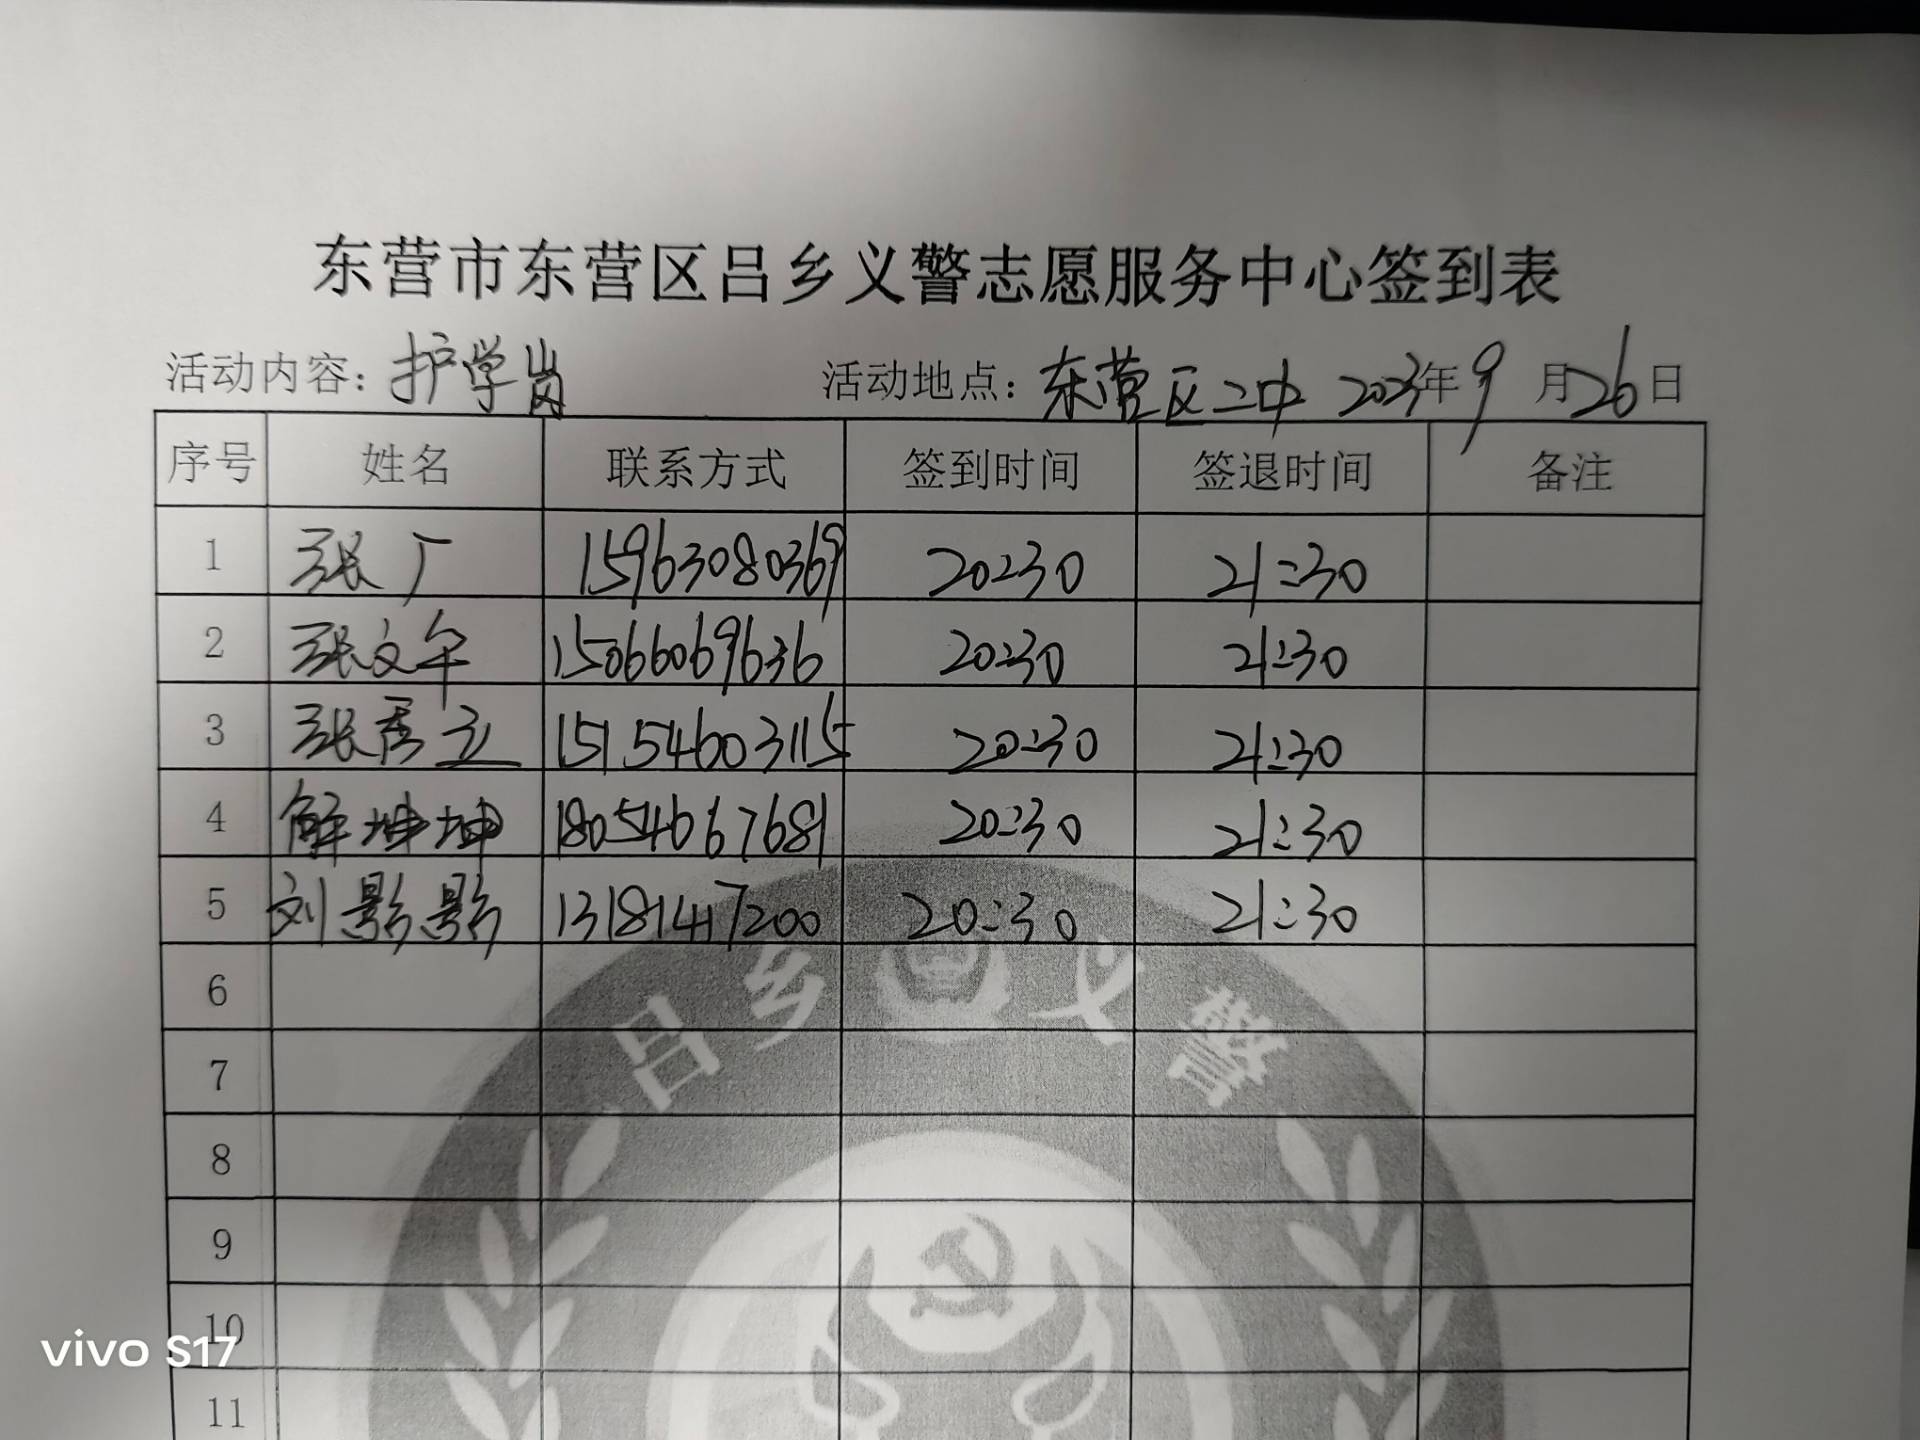 东营市东营区吕乡义警志愿服务中心签到表
活动内容：护学岗 活动地点：东营区二中 2023年9月26日
序号 姓名 联系方式 签到时间 签退时间 备注
1 张广 15963080369 20:30 21:30
2 张文军 15066069636 20:30 21:30
3 张秀立 15154603115 20:30 21:30
4 解坤坤 18054667681 20:30 21:30
5 刘影影 13181417200 20:30 21:30
吕乡义警
6
7
8
9
10
11
vivo S17